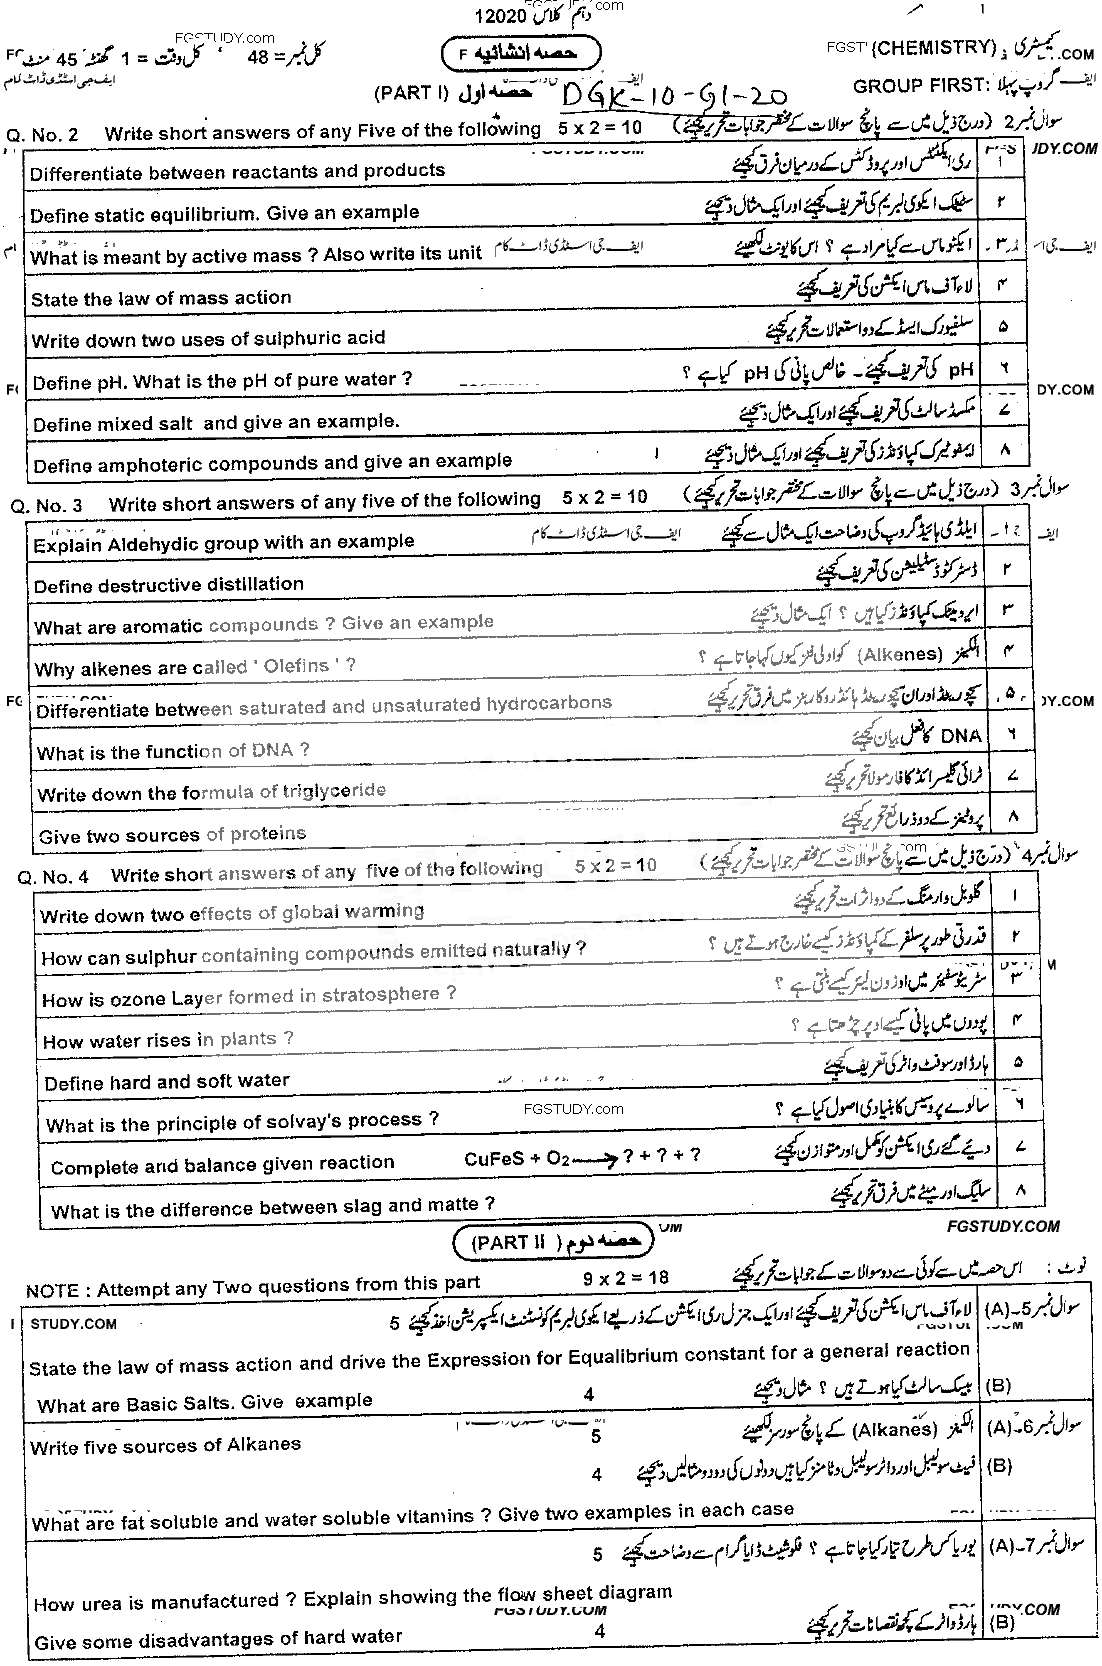 دہم کلاس 12020
FGSTUDY.com
کیمسٹری (CHEMISTRY) حصہ انشائیہ کل نمبر = 48 کل وقت = 1 گھنٹہ 45 منٹ
ایف جی اسٹڈی ڈاٹ کام
GROUP FIRST: گروپ پہلا DGK-10-G1-20 حصہ اول (PART I)
Q. No. 2 Write short answers of any Five of the following 5 x 2 = 10 سوال نمبر 2 (درج ذیل میں سے پانچ سوالات کے مختصر جوابات تحریر کیجئے)
Differentiate between reactants and products ری ایکٹنٹس اور پروڈکٹس کے درمیان فرق کیجئے ۱
Define static equilibrium. Give an example سٹیٹک ایکوی لبریم کی تعریف کیجئے اور ایک مثال دیجئے ۲
What is meant by active mass ? Also write its unit ایف جی اسٹڈی ڈاٹ کام ایکٹو ماس سے کیا مراد ہے ؟ اس کا یونٹ لکھیئے ۳
State the law of mass action لاء آف ماس ایکشن کی تعریف کیجئے ۴
Write down two uses of sulphuric acid سلفیورک ایسڈ کے دو استعمالات تحریر کیجئے ۵
Define pH. What is the pH of pure water ? pH کی تعریف کیجئے ۔ خالص پانی کی pH کیا ہے ؟ ۶
Define mixed salt and give an example. مکسڈ سالٹ کی تعریف کیجئے اور ایک مثال دیجئے ۷
Define amphoteric compounds and give an example ایمفوٹیرک کمپاؤنڈز کی تعریف کیجئے اور ایک مثال دیجئے ۸
Q. No. 3 Write short answers of any five of the following 5 x 2 = 10 سوال نمبر 3 (درج ذیل میں سے پانچ سوالات کے مختصر جوابات تحریر کیجئے)
Explain Aldehydic group with an example ایف جی اسٹڈی ڈاٹ کام ایلڈی ہائیڈ گروپ کی وضاحت ایک مثال سے کیجئے ۱
Define destructive distillation ڈسٹرکٹو ڈسٹیلیشن کی تعریف کیجئے ۲
What are aromatic compounds ? Give an example ایرومیٹک کمپاؤنڈز کیا ہیں ؟ ایک مثال دیجئے ۳
Why alkenes are called ' Olefins ' ? الکینز (Alkenes) کو اولی فنز کیوں کہا جاتا ہے ؟ ۴
Differentiate between saturated and unsaturated hydrocarbons سچوریٹڈ اور ان سچوریٹڈ ہائڈروکاربنز میں فرق تحریر کیجئے ۵
What is the function of DNA ? DNA کا فعل بیان کیجئے ۶
Write down the formula of triglyceride ٹرائی گلیسرائڈ کا فارمولا تحریر کیجئے ۷
Give two sources of proteins پروٹینز کے دو ذرائع تحریر کیجئے ۸
Q. No. 4 Write short answers of any five of the following 5 x 2 = 10 سوال نمبر 4 (درج ذیل میں سے پانچ سوالات کے مختصر جوابات تحریر کیجئے)
Write down two effects of global warming گلوبل وارمنگ کے دو اثرات تحریر کیجئے ۱
How can sulphur containing compounds emitted naturally ? قدرتی طور پر سلفر کے کمپاؤنڈز کیسے خارج ہوتے ہیں ؟ ۲
How is ozone Layer formed in stratosphere ? سٹریٹوسفیئر میں اوزون لیئر کیسے بنتی ہے ؟ ۳
How water rises in plants ? پودوں میں پانی کیسے اوپر چڑھتا ہے ؟ ۴
Define hard and soft water ہارڈ اور سوفٹ واٹر کی تعریف کیجئے ۵
What is the principle of solvay's process ? FGSTUDY.com سالوے پروسیس کا بنیادی اصول کیا ہے ؟ ۶
Complete and balance given reaction CuFeS + O2 ⟶ ? + ? + ? دیئے گئے ری ایکشن کو مکمل اور متوازن کیجئے ۷
What is the difference between slag and matte ? سلیگ اور میٹے میں فرق تحریر کیجئے ۸
حصہ دوم (PART II) FGSTUDY.COM
NOTE : Attempt any Two questions from this part 9 x 2 = 18 نوٹ : اس حصہ میں سے کوئی سے دو سوالات کے جوابات تحریر کیجئے
STUDY.COM سوال نمبر 5۔(A) لاء آف ماس ایکشن کی تعریف کیجئے اور ایک جنرل ری ایکشن کے ذریعے ایکوی لبریم کونسٹنٹ ایکسپریشن اخذ کیجئے 5
State the law of mass action and drive the Expression for Equalibrium constant for a general reaction
What are Basic Salts. Give example 4 بیسک سالٹ کیا ہوتے ہیں ؟ مثال دیجئے (B)
Write five sources of Alkanes 5 سوال نمبر 6۔(A) الکینز (Alkanes) کے پانچ سورسز لکھیئے
4 فیٹ سولیبل اور واٹر سولیبل وٹامنز کیا ہیں دونوں کی دو دو مثالیں دیجئے (B)
What are fat soluble and water soluble vitamins ? Give two examples in each case
5 سوال نمبر 7۔(A) یوریا کس طرح تیار کیا جاتا ہے ؟ فلوشیٹ ڈایاگرام سے وضاحت کیجئے
How urea is manufactured ? Explain showing the flow sheet diagram
FGSTUDY.COM
Give some disadvantages of hard water 4 ہارڈ واٹر کے کچھ نقصانات تحریر کیجئے (B)